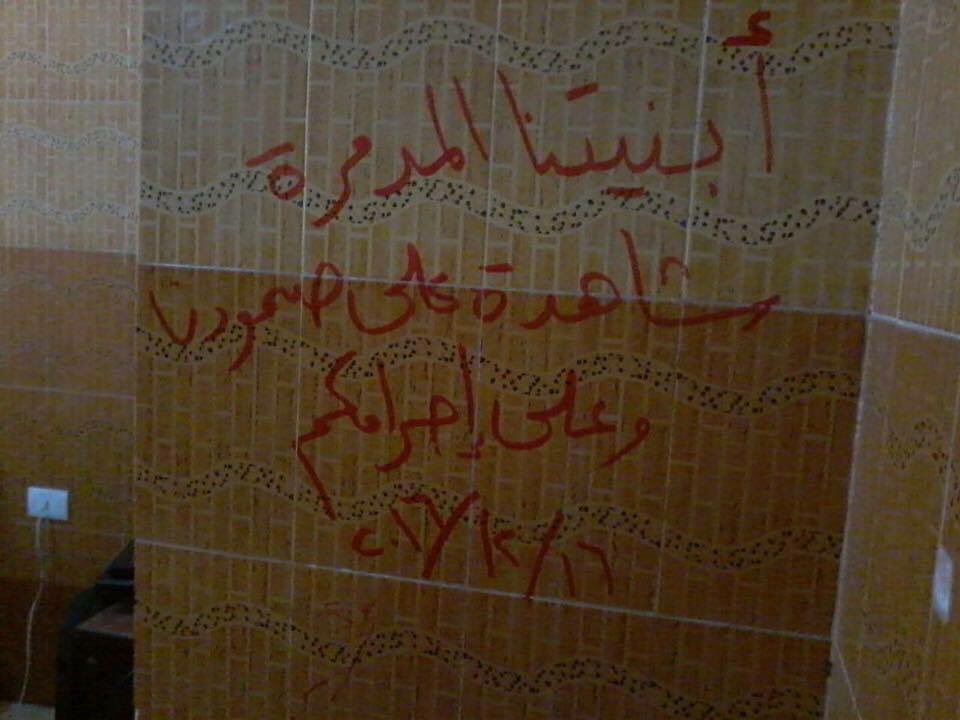 أبنيتنا المدمرة
شاهدة على صمودنا
وعلى إجرامكم
١٦/١٢/٢٠١٦